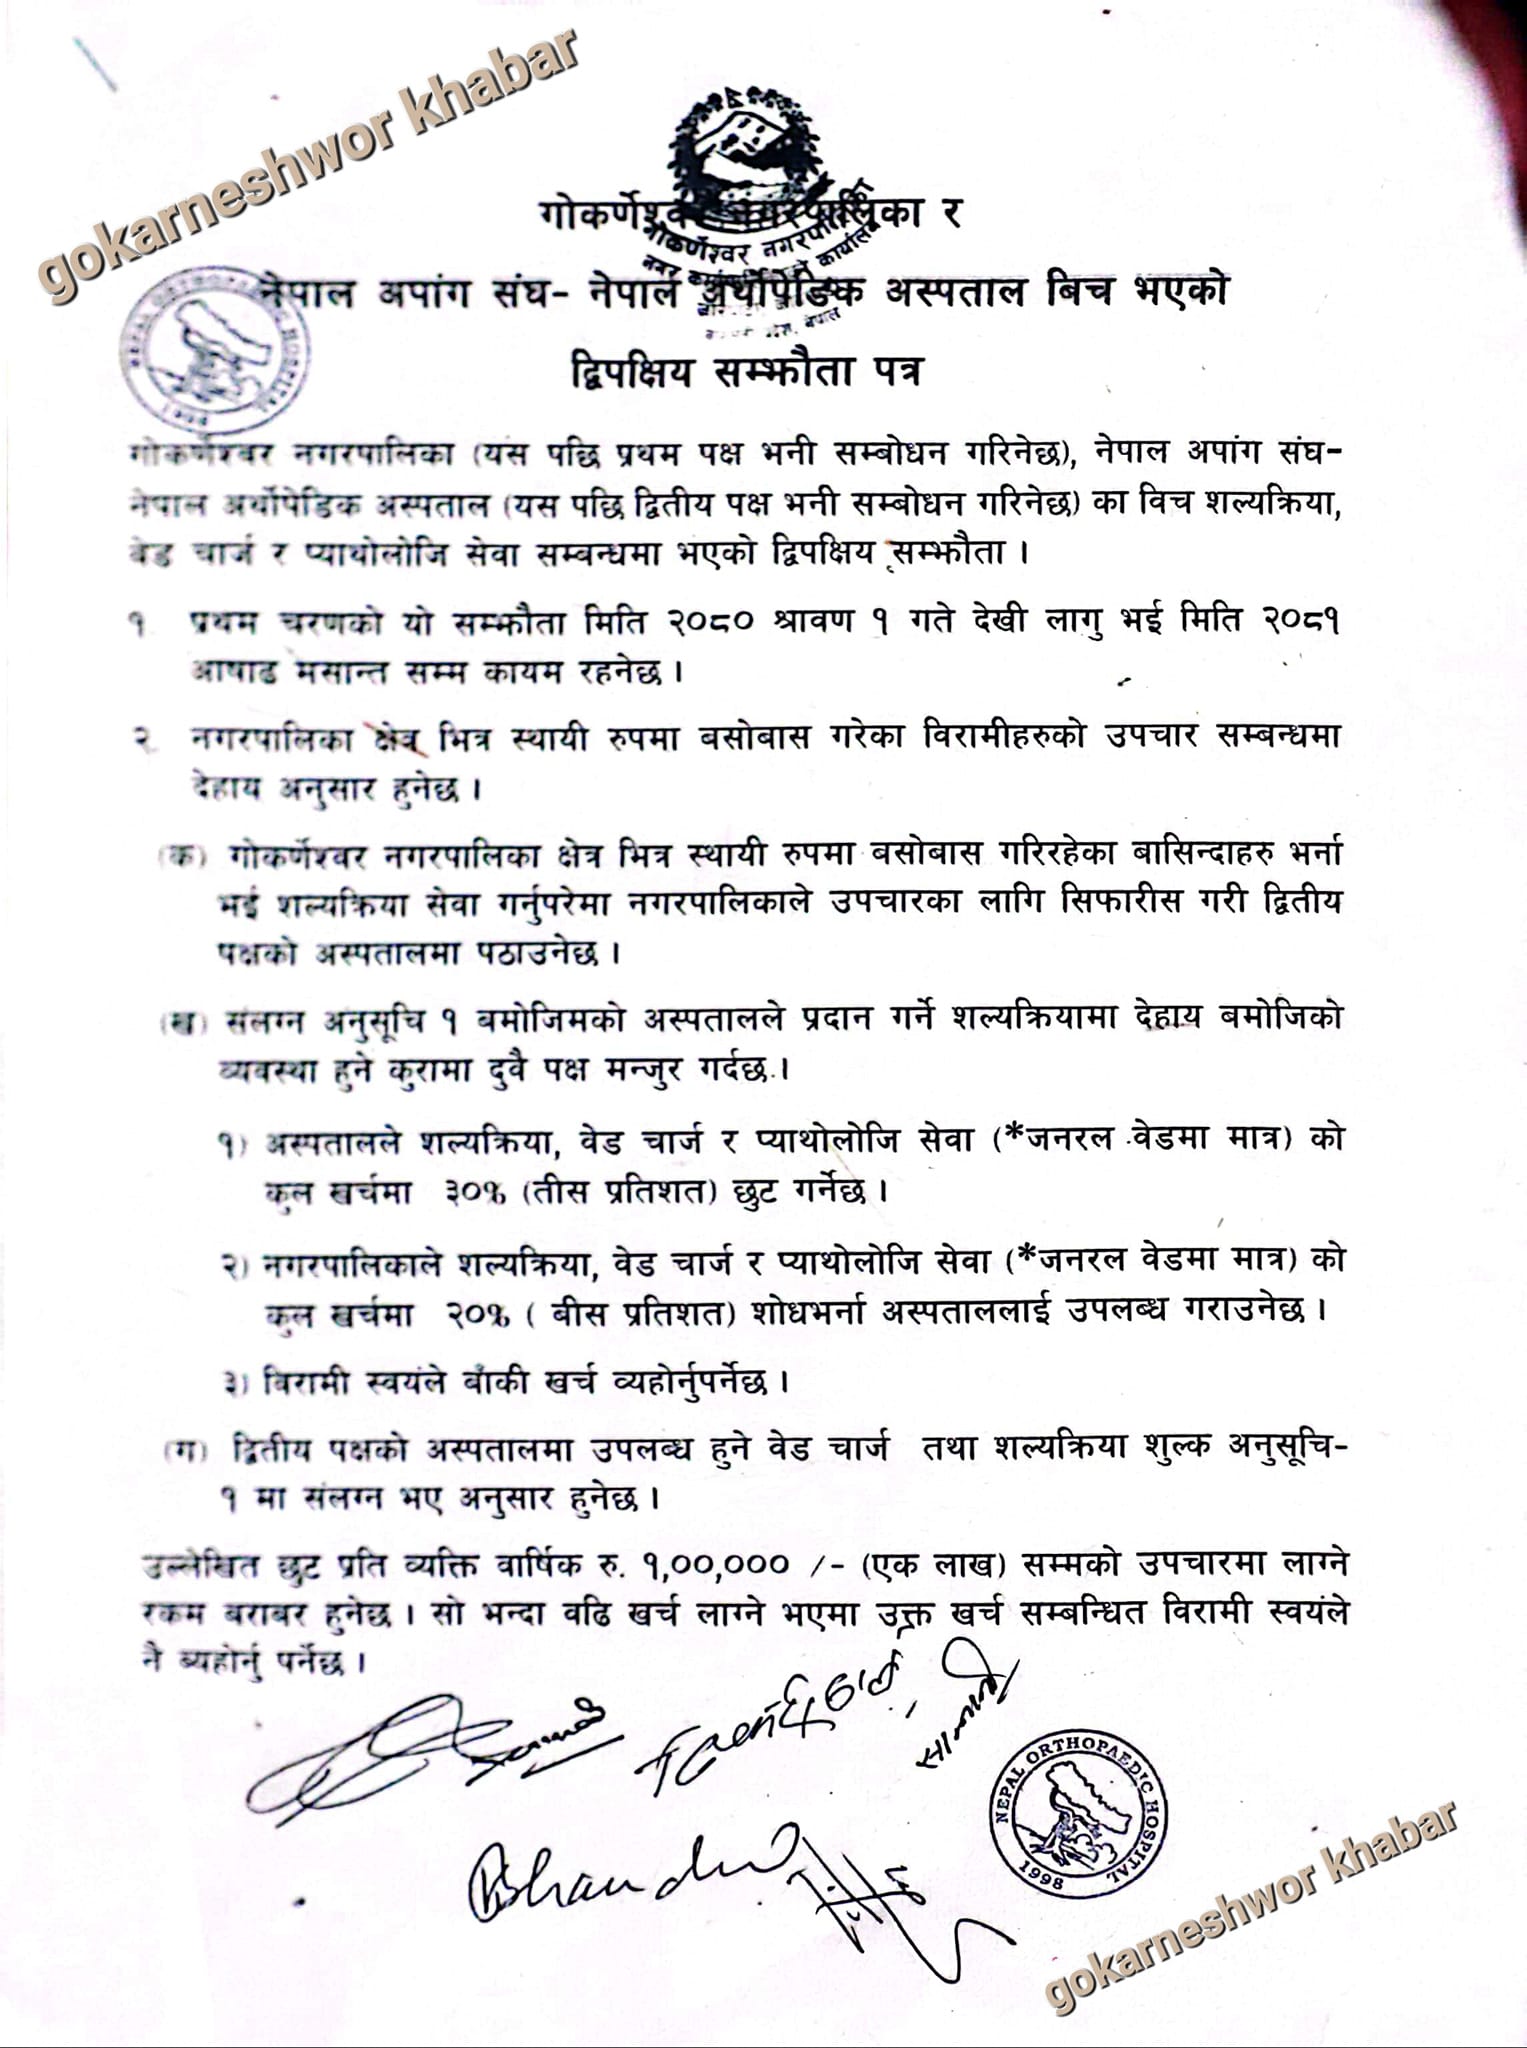 gokarneshwor khabar
गोकर्णेश्वर नगरपालिका र
गोकर्णेश्वर नगरपालिका
नगर कार्यालय
नेपाल
नेपाल अपांग संघ- नेपाल अर्थोपेडिक अस्पताल बिच भएको
द्विपक्षिय सम्झौता पत्र
गोकर्णेश्वर नगरपालिका (यस पछि प्रथम पक्ष भनी सम्बोधन गरिनेछ), नेपाल अपांग संघ-
नेपाल अर्थोपेडिक अस्पताल (यस पछि द्वितीय पक्ष भनी सम्बोधन गरिनेछ) का विच शल्यक्रिया,
वेड चार्ज र प्याथोलोजि सेवा सम्बन्धमा भएको द्विपक्षिय सम्झौता ।
१ प्रथम चरणको यो सम्झौता मिति २०८० श्रावण १ गते देखी लागु भई मिति २०८१
आषाढ मसान्त सम्म कायम रहनेछ ।
२ नगरपालिका क्षेत्र भित्र स्थायी रुपमा बसोबास गरेका विरामीहरुको उपचार सम्बन्धमा
देहाय अनुसार हुनेछ ।
(क) गोकर्णेश्वर नगरपालिका क्षेत्र भित्र स्थायी रुपमा बसोबास गरिरहेका बासिन्दाहरु भर्ना
भई शल्यक्रिया सेवा गर्नुपरेमा नगरपालिकाले उपचारका लागि सिफारीस गरी द्वितीय
पक्षको अस्पतालमा पठाउनेछ ।
(ख) संलग्न अनुसूचि १ बमोजिमको अस्पतालले प्रदान गर्ने शल्यक्रियामा देहाय बमोजिको
व्यवस्था हुने कुरामा दुवै पक्ष मन्जुर गर्दछ ।
१) अस्पतालले शल्यक्रिया, वेड चार्ज र प्याथोलोजि सेवा (*जनरल वेडमा मात्र) को
कुल खर्चमा ३०% (तीस प्रतिशत) छुट गर्नेछ ।
२) नगरपालिकाले शल्यक्रिया, वेड चार्ज र प्याथोलोजि सेवा (*जनरल वेडमा मात्र) को
कुल खर्चमा २०% ( बीस प्रतिशत) शोधभर्ना अस्पताललाई उपलब्ध गराउनेछ ।
३) विरामी स्वयंले बाँकी खर्च व्यहोर्नुपर्नेछ ।
(ग) द्वितीय पक्षको अस्पतालमा उपलब्ध हुने वेड चार्ज तथा शल्यक्रिया शुल्क अनुसूचि-
१ मा संलग्न भए अनुसार हुनेछ ।
उल्लेखित छुट प्रति व्यक्ति वार्षिक रु. १,००,००० /- (एक लाख) सम्मको उपचारमा लाग्ने
रकम बराबर हुनेछ । सो भन्दा वढि खर्च लाग्ने भएमा उक्त खर्च सम्बन्धित विरामी स्वयंले
नै ब्यहोर्नु पर्नेछ ।
Bhandari
NEPAL ORTHOPAEDIC HOSPITAL
1998
gokarneshwor khabar